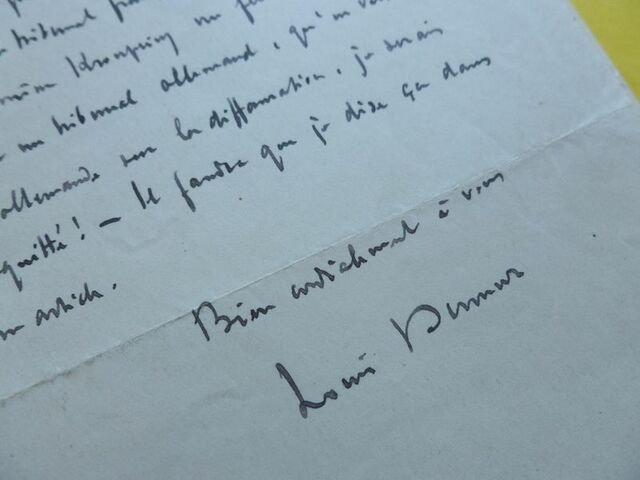 tribunal
même Kronprinz
un tribunal allemand, qu'en
allemande sur la diffamation, je serais
quitté! — Il faudra que je dise ça dans
un article.
Bien cordialement à vous
Louis Dumur